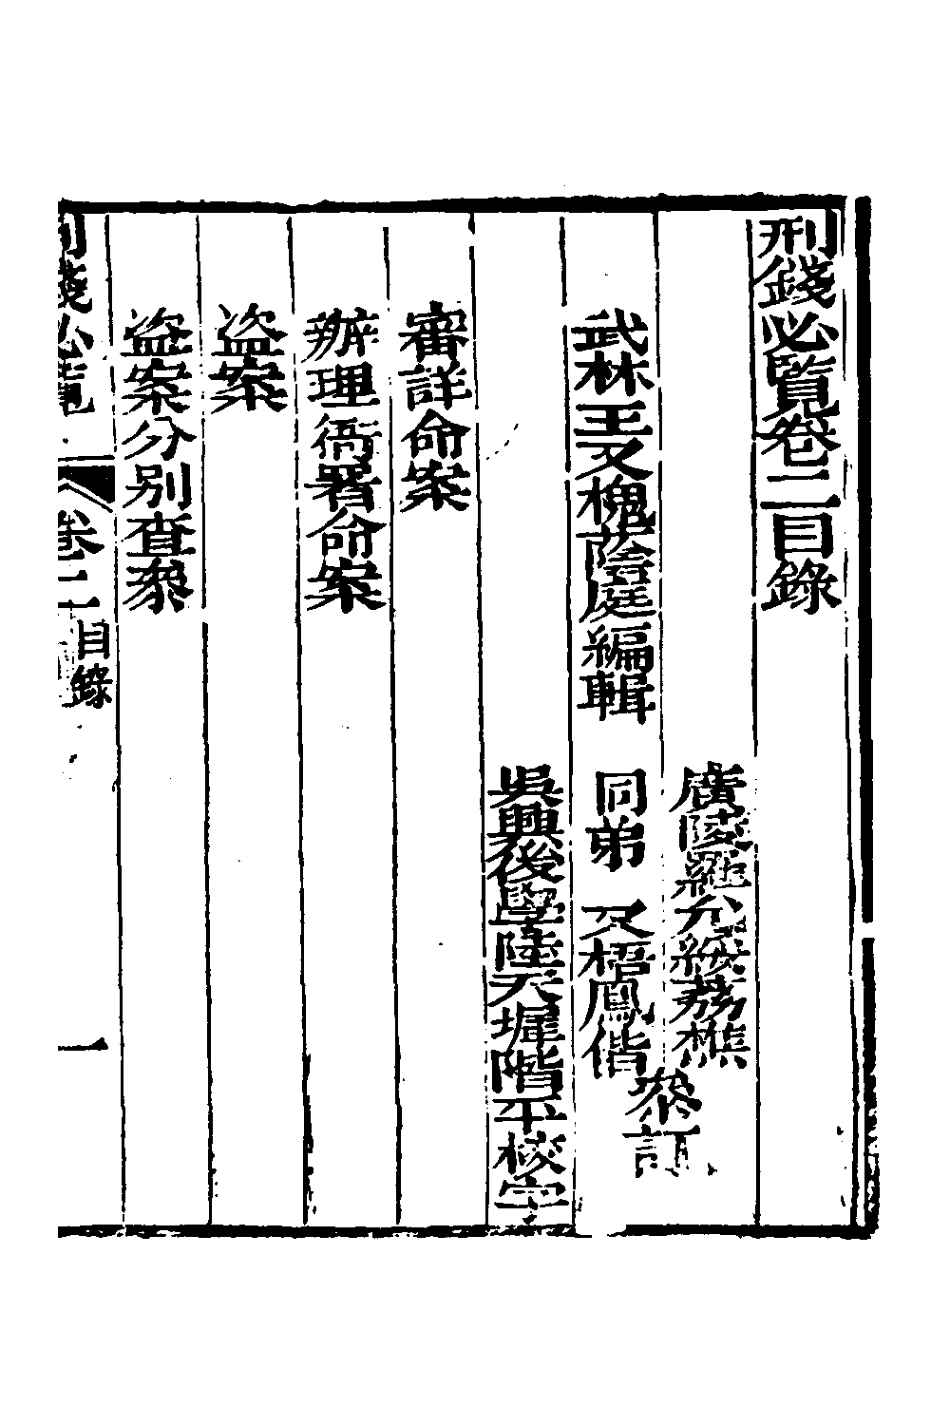 刑錢必覽卷二目錄
廣陵羅公綏荔樵
武林王又槐蔭庭編輯　同弟　又梧鳳偕
叅訂
吳興後學陸天墀階平校字
審詳命案
辦理衙署命案
盜案
盜案分別查叅
刑錢必覽
卷二
目錄
一